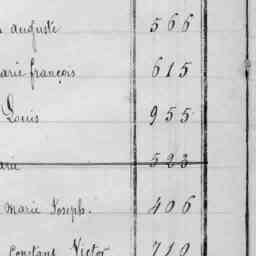 auguste 566
arie françois 615
Louis 955
arie 523
marie Joseph. 406
Constant Victor 719